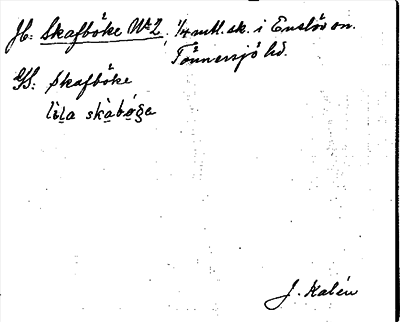 JB: Skafböke No 2, 1/4 mtl. sk. i Enslöv sn.
Tönnersjö hd.
GS: Skafböke
lila skàbóga
J. Kalén